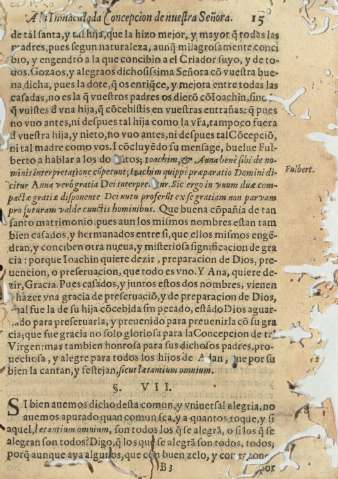 A la Inmaculada Concepcion de nuestra Señora. 15
de tal santa, y tal hija, que la hizo mejor, y mayor q̃ todas las
madres, pues segun naturaleza, aunq̃ milagrosamente conci
bio, y engendrò a la que concibio a el Criador suyo, y de to-
dos. Gozaos, y alegraos dichosissima Señora cõ vuestra bue
na dicha, pues la dote, q̃ os enriqce, y mejora entre todas las
casadas, no es la q̃ vuestros padres os dierõ cõ Ioachin, sino
q̃ vuistes d̃ vna hija, q̃ cõcebistis en vuestras entrañas: q̃ pues
no vuo antes, ni despues tal hija como la vřa, tampoco fuera
d̃ vuestra hija, y nieto, no vuo antes, ni despues tal Cõcepciõ,
ni tal madre como vos. I cõcluyẽdo su mensage, buelue Ful-
berto a hablar a los do Ioachim, & Anna bene sibi de no-
minis interpretatione cõperunt; Ioachim quippe præparatio Domini di-
citur Anna verò gratia Dei interpretatur. Sic ergo in vnum duæ com-
Fulbert.
pactæ gratia disponente Dei nutu profersit ex se gratiam non paruam
pro futuram valde cunctis hominibus. Que buena cõpañia de tan
santo matrimonio: pues aun los mismos nombres estan tam
bien casados, y hermanados entre si, que ellos mismos engẽ
dran, y conciben otra nueua, y misteriosa significacion de gra
cia: porque Ioachin quiere dezir, preparacion de Dios, pre-
uencion, o preseruacion, que todo es vno. Y Ana, quiere de-
zir, Gracia. Pues casados, y juntos estos dos nombres, vienen
hàzer vna gracia de preseruaciõ, y de preparacion de Dios,
qual fue la de su hija cõcebida sin pecado, estãdo Dios aguar-
dando para preseruarla, y preuenido para preuenirla cõ su gra
cia; que fue gracia no solo gloriosa para la Concepcion de la
Virgen: mas tambien honrosa para sus dichosos padres, pro-
uechosa, y alegre para todos los hijos de Adan, que por su
bien la cantan, y festejan, sicut lætantium omnium.
§. VII.
SI bien auemos dicho desta comun, y vniuersal alegria, no
auemos apurado quan comun sea, y a quantos toque, y si
aquel, lætantium omnium, son todos los q̃ se alegrã, o los q̃ se
alegran son todos? Digo, q̃ los que se alegrã son todos, todos;
porq̃ aunque aya algunos, que con buen zelo, y
B3 por